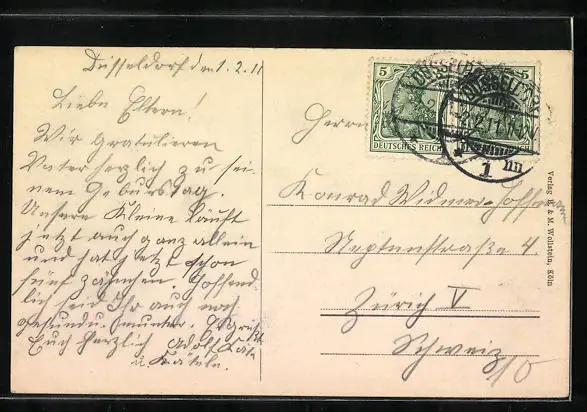 Düsseldorf den 1.2.11
Liebe Eltern!
Wir gratulieren
Vater herzlich zu sei-
nem Geburtstag.
Unsere Kleine läuft
jetzt auch ganz allein
und hat jetzt schon
fünf Zähnchen. Hoffend-
lich seid Ihr auch noch
gesund u. munter. Es grüßt
Euch herzlich Adolf
u. Kätele.
5 5
DEUTSCHES REICH
DÜSSELDORF
1 nn
Herrn
Konrad Widmer-Hoffmann
Neptunstraße 4.
Zürich V
Schweiz
Verlag H. & M. Wollstein, Köln